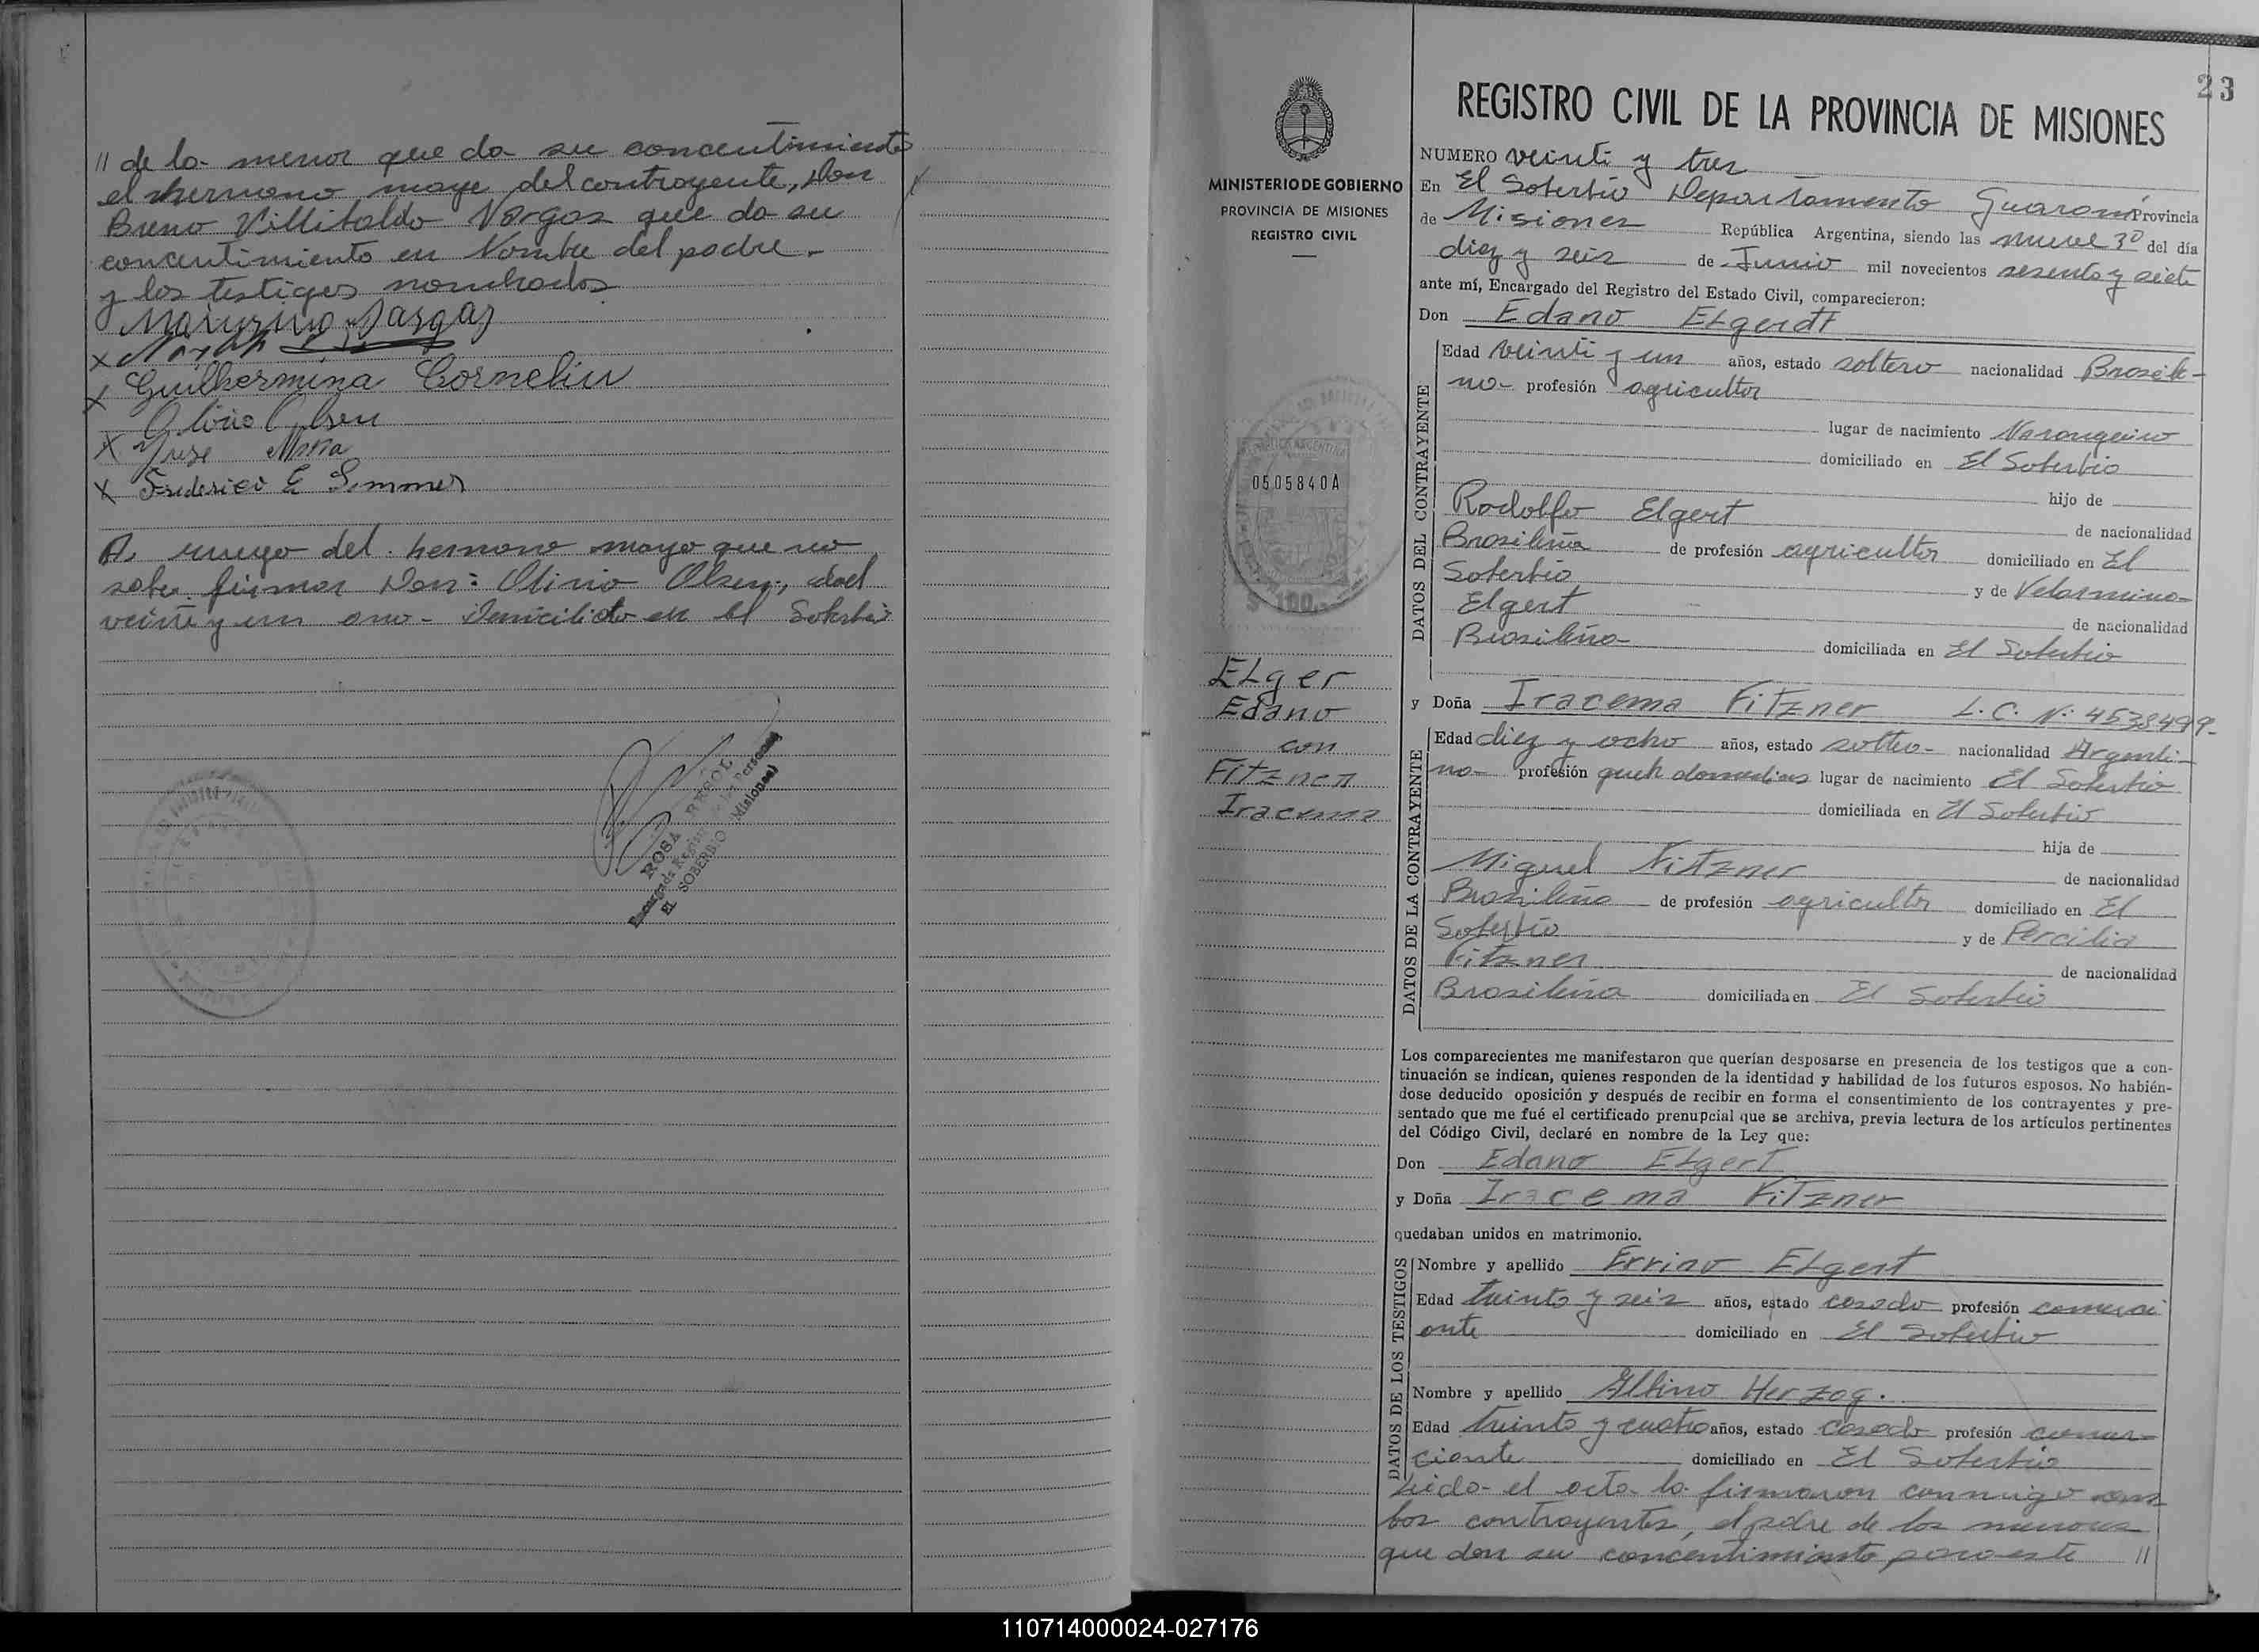 // de la menor que da su concentimiento
el hermano mayo del contrayente, Don
Breno Villibaldo Vargas que da su
concentimiento en Nombre del padre -
y los testigos nombrados
Guilhermina Cornelius
Olirio Olsen
Frederico E
A ruego del hermano mayo que no
sabe firmar Don: Olirio Olsen, edad
veinte y un ano - Domicilido en El Soberbio
ROSA
Encargada Registro de las Personas
EL SOBERBIO (Misiones)
23
MINISTERIO DE GOBIERNO
PROVINCIA DE MISIONES
REGISTRO CIVIL
0505840A
ELger
Edano
con
Fitzner
Iracema
REGISTRO CIVIL DE LA PROVINCIA DE MISIONES
NUMERO veinti y tres
En El Soberbio Departamento Guarani Provincia
de Misiones República Argentina, siendo las nueve 30 del día
diez y seis de Junio mil novecientos sesenta y siete
ante mí, Encargado del Registro del Estado Civil, comparecieron:
Don Edano ELgerdt
DATOS DEL CONTRAYENTE
Edad veinti y un años, estado soltero nacionalidad Brasile-
no- profesión agricultor
lugar de nacimiento
domiciliado en El Soberbio
hijo de
Rodolfo Elgert de nacionalidad
Brasileña de profesión agricultor domiciliado en El
Soberbio y de Velarmina-
Elgert de nacionalidad
Brasileña domiciliada en El Soberbio
y Doña Iracema Fitzner L.C. Nº 4538499-
DATOS DE LA CONTRAYENTE
Edad diez y ocho años, estado soltero- nacionalidad Argenti-
no- profesión lugar de nacimiento El Soberbio
domiciliada en El Soberbio
hija de
Miguel Fitzner de nacionalidad
Brasileña de profesión agricultor domiciliado en El
Soberbio y de Percilia
Fitzner de nacionalidad
Brasileña domiciliada en El Soberbio
Los comparecientes me manifestaron que querían desposarse en presencia de los testigos que a con-
tinuación se indican, quienes responden de la identidad y habilidad de los futuros esposos. No habién-
dose deducido oposición y después de recibir en forma el consentimiento de los contrayentes y pre-
sentado que me fué el certificado prenupcial que se archiva, previa lectura de los artículos pertinentes
del Código Civil, declaré en nombre de la Ley que:
Don Edano ELgert
y Doña Iracema Fitzner
quedaban unidos en matrimonio.
DATOS DE LOS TESTIGOS
Nombre y apellido Ervino ELgert
Edad treinta y seis años, estado casado profesión comerci
ante domiciliado en El Soberbio
Nombre y apellido Albino Herzog.
Edad treinta y cuatro años, estado casado profesión comer-
ciante domiciliado en El Soberbio
Leida el acta la firmaron conmigo am
bos contrayentes, el padre de los menores
que dan su concentimiento para este //
110714000024-027176